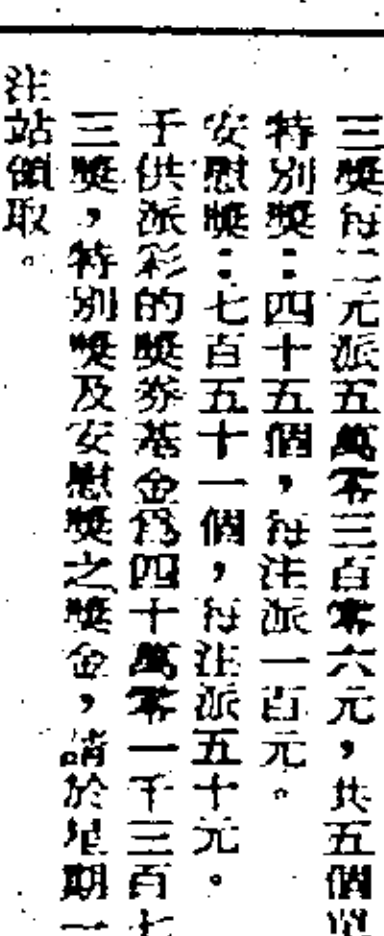 三獎每二元派五萬零三百零六元，共五個單
特別獎：四十五個，每注派一百元。
安慰獎：七百五十一個，每注派五十元。
予供派彩的獎券基金爲四十萬零一千三百七
三獎，特別獎及安慰獎之獎金，請於星期一
注站領取。